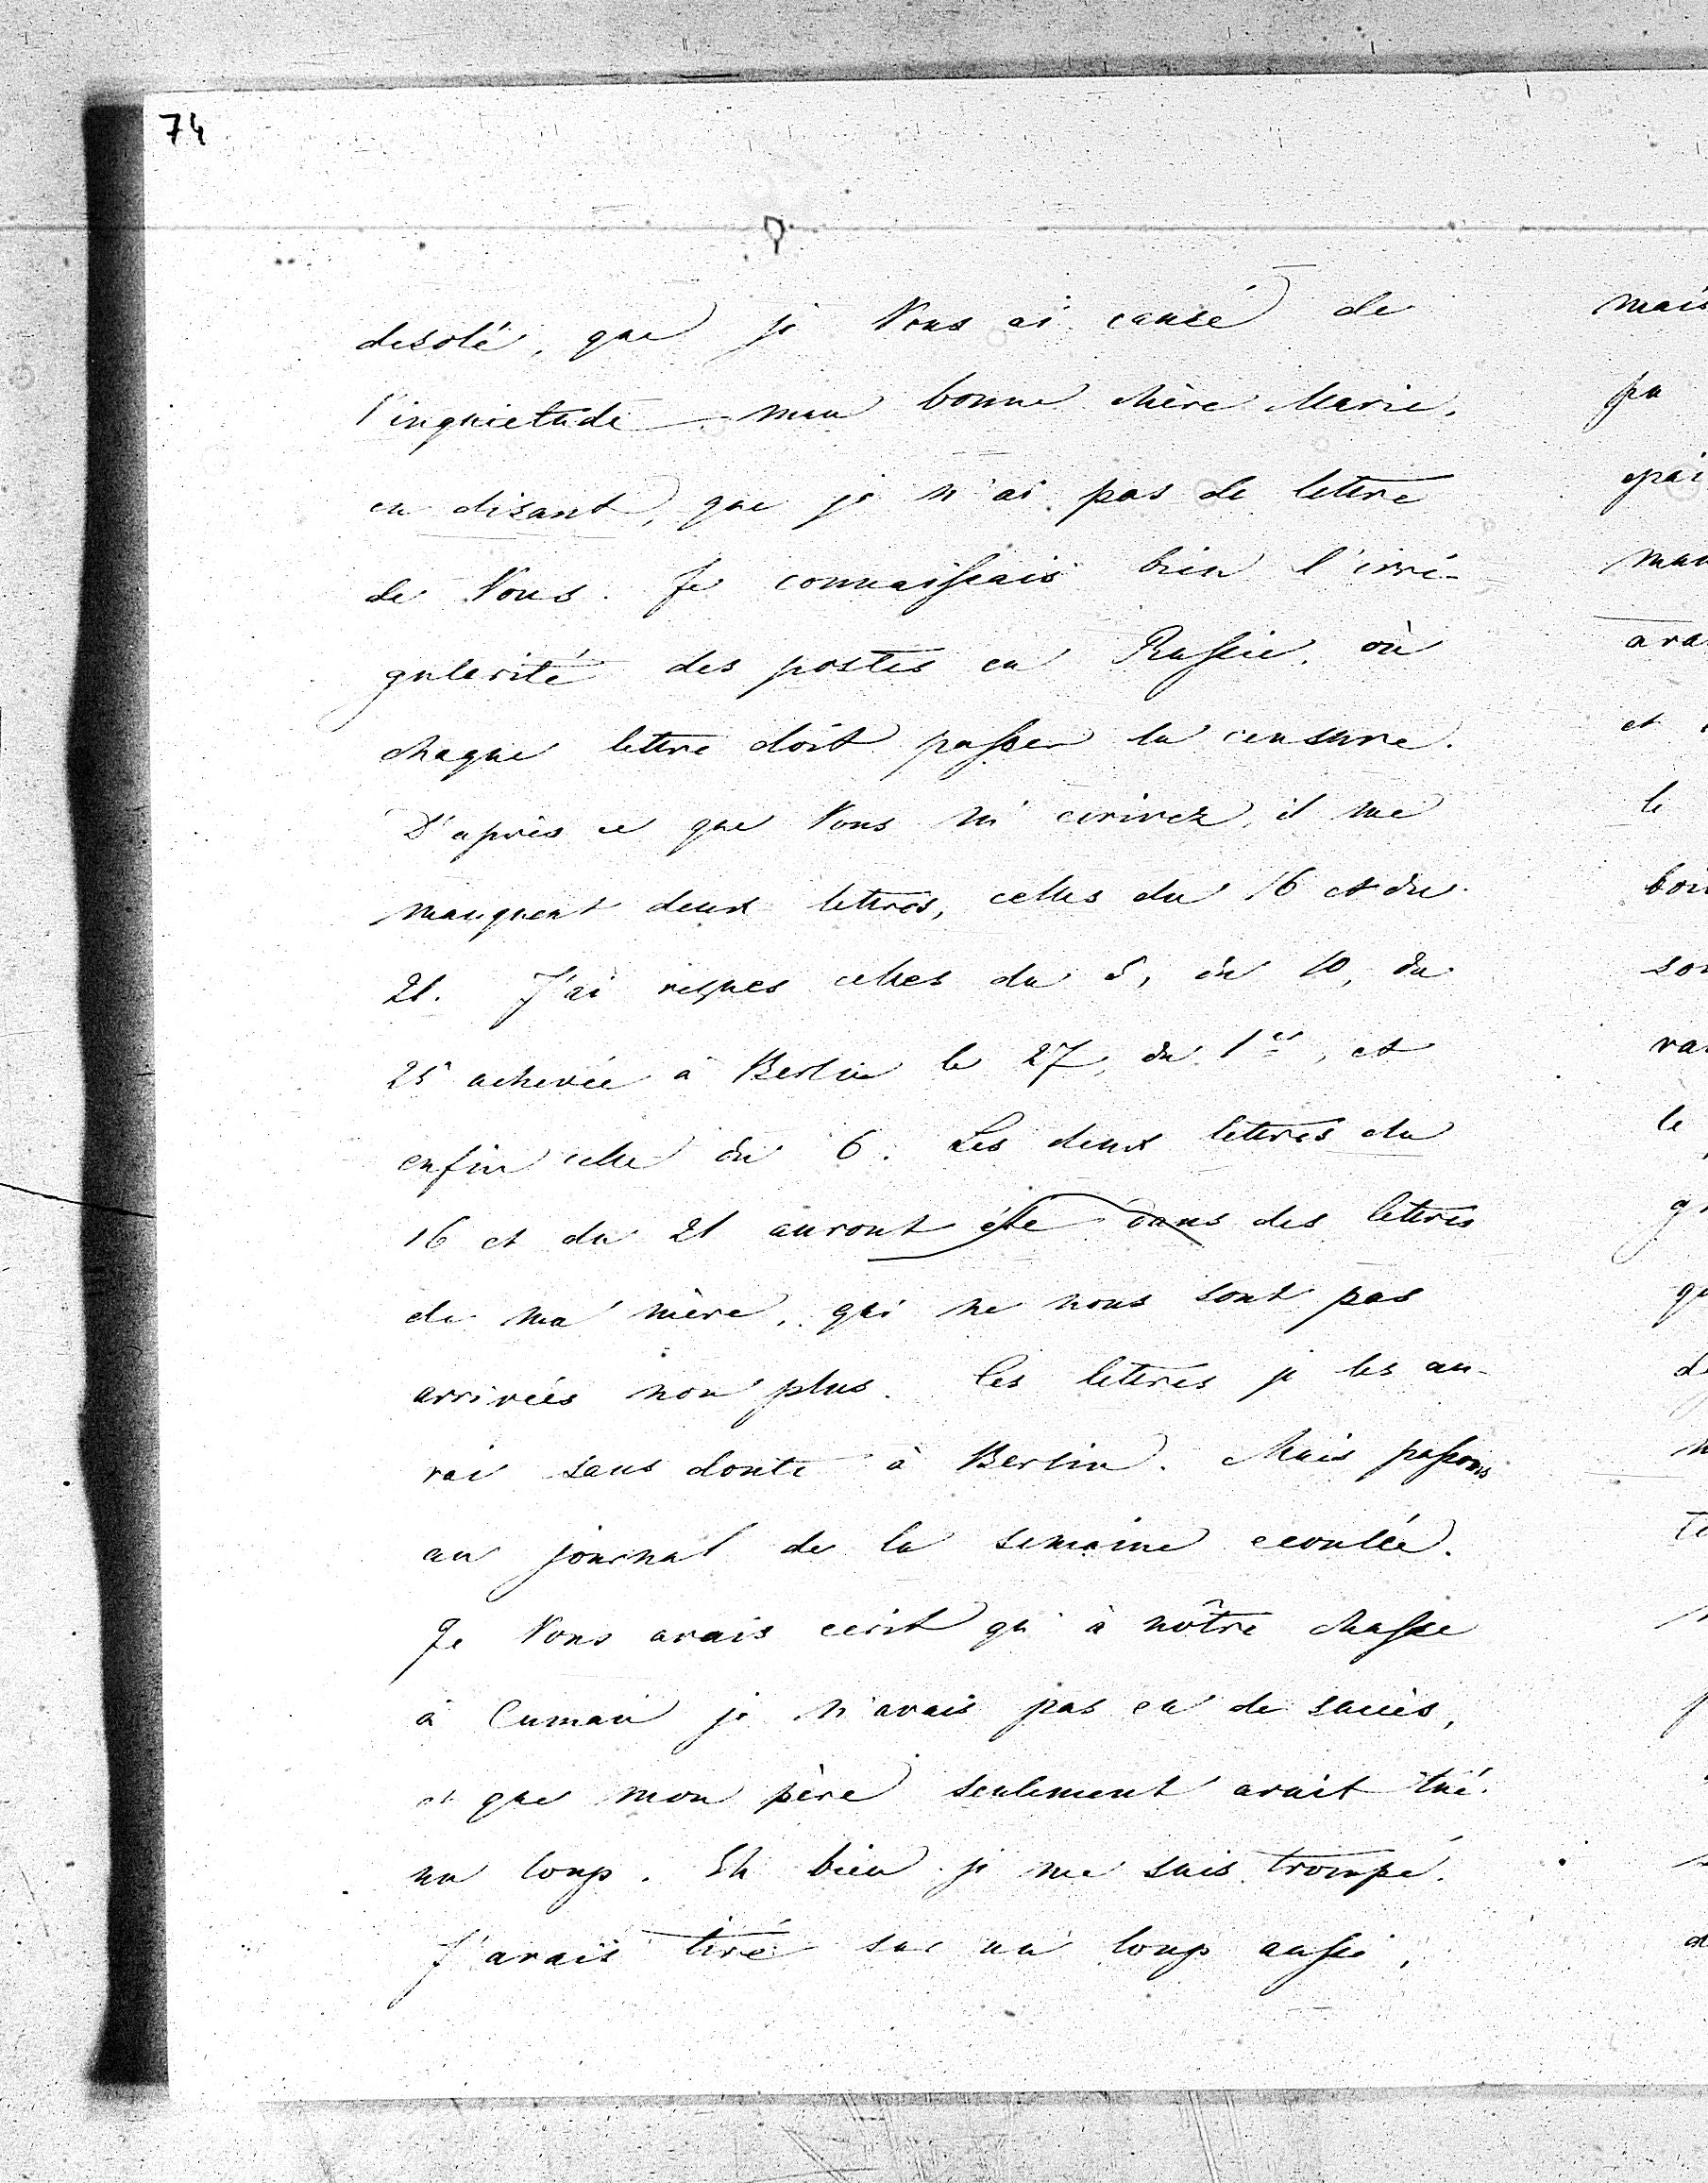 74
desolé, que je Vous ai causé de
l'inquietude ma bonne chère Marie,
en disant, que je n'ai pas de lettre
de Vous. Je connaissais bien l'irré-
gularité des postes en Russie, où
chaque lettre doit passer la censure.
D'après ce que Vous m'ecrivez, il me
manquent deux lettres, celles du 16 et du
21. J'ai reçues celles du 5, du 10, du
25 achevée à Berlin le 27, du 1er, et
enfin celle du 6. Les deux lettres du
16 et du 21 auront été dans des lettres
de ma mère, qui ne nous sont pas
arrivées non plus. Ces lettres je les au-
rai sans doute à Berlin. Mais passons
au journal de la semaine ecoulée.
Je Vous avais ecrit qu'à nôtre chasse
à Cuman je n'avais pas eu de succès,
et que mon père seulement avait tué
un loup. Eh bien je me suis trompé.
J'avais tiré sur un loup aussi,
mais
pu
ava
et
le
son
le